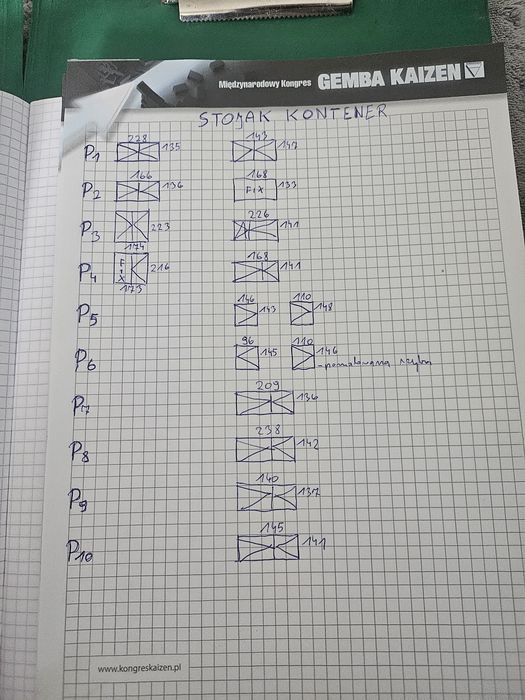 Międzynarodowy Kongres GEMBA KAIZEN
STOJAK KONTENER
228 143
P1 135 147
166 168
P2 136 FIX 133
226
P3 223 141
174 168
P4 FIX 216 141
173
146 110
P5 143 148
96 110
P6 145 146
- pomalowana szyba
209
P7 136
238
P8 142
140
P9 137
145
P10 141
www.kongreskaizen.pl